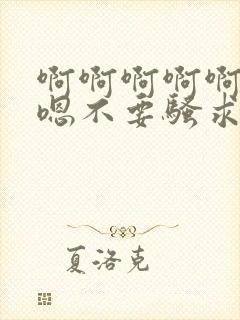 啊啊啊啊啊
嗯不要骚求
夏洛克